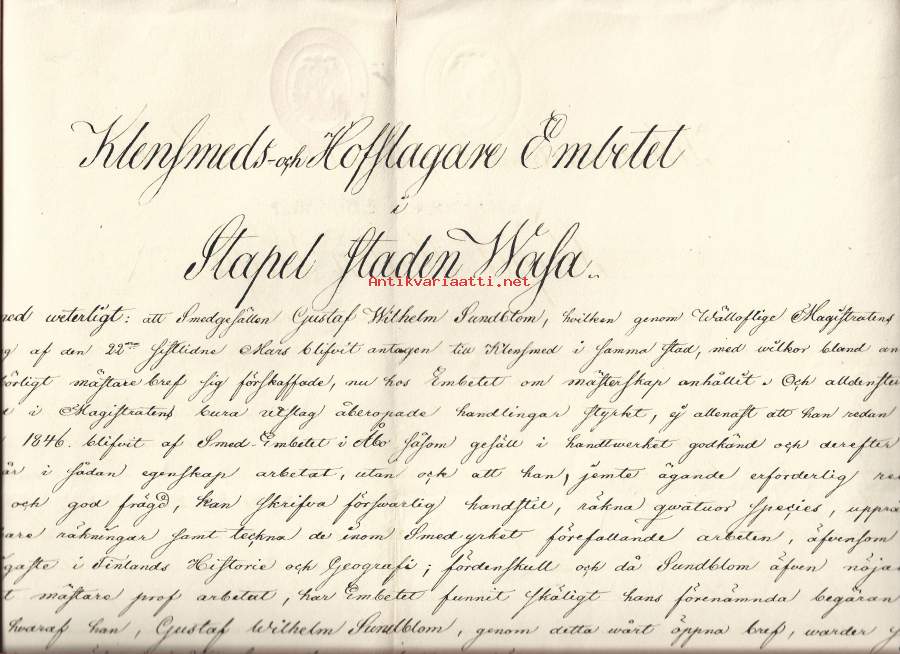 Klensmeds- och Hofslagare Embetet
i
Stapel staden Wasa.
Antikvariaatti.net
med veterligt: att Smedgesällen Gustaf Wilhelm Sundblom, hvilken genom Wälloflige Magistratens
af den 22ne sistlidne Mars blifvit antagen till Klensmed i samma stad, med wilkor bland an
mästare bref sig förskaffade, nu hos Embetet om mästerskap anhållit. Och alldenstu
i Magistratens bura utslag åberopade handlingar styrkt, ej allenast att han redan
1846. blifvit af Smed-Embetet i Åbo såsom gesäll i handtwerket godkänd och derefter
i sådan egenskap arbetat, utan ock att han, jemte ägande erforderlig re
och god frägd, kan skrifva försvarlig handstil, räkna quatuor species, upprä
räkningar samt teckna de inom Smed yrket förefallande arbeten, äfvensom
i Finlands Historie och Geografi; fördenskull och då Sundblom äfven nöja
mästare prof arbetat, har Embetet funnit skäligt hans förenämnda begäran
hvaraf han, Gustaf Wilhelm Sundblom, genom detta wårt öppna bref, warder